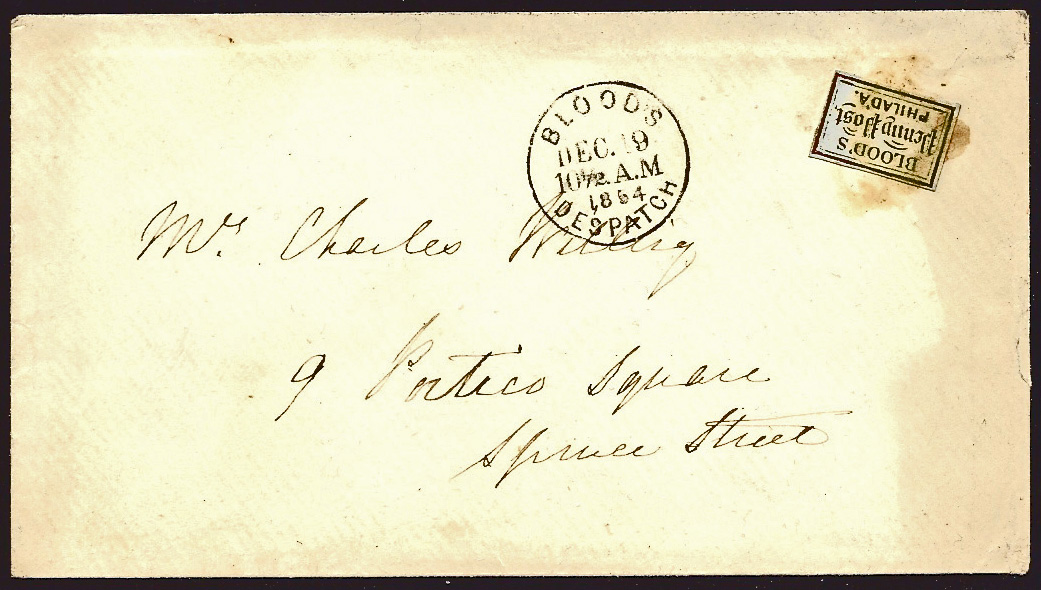 BLOOD'S
DEC. 19
10½ A.M
1854
DESPATCH
BLOOD'S
Penny Post,
PHILAD'A.
Mr. Charles Willing
9 Portico Square
Spruce Street